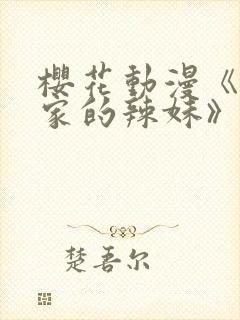 櫻花動漫《
家的辣妹》
楚吾尔